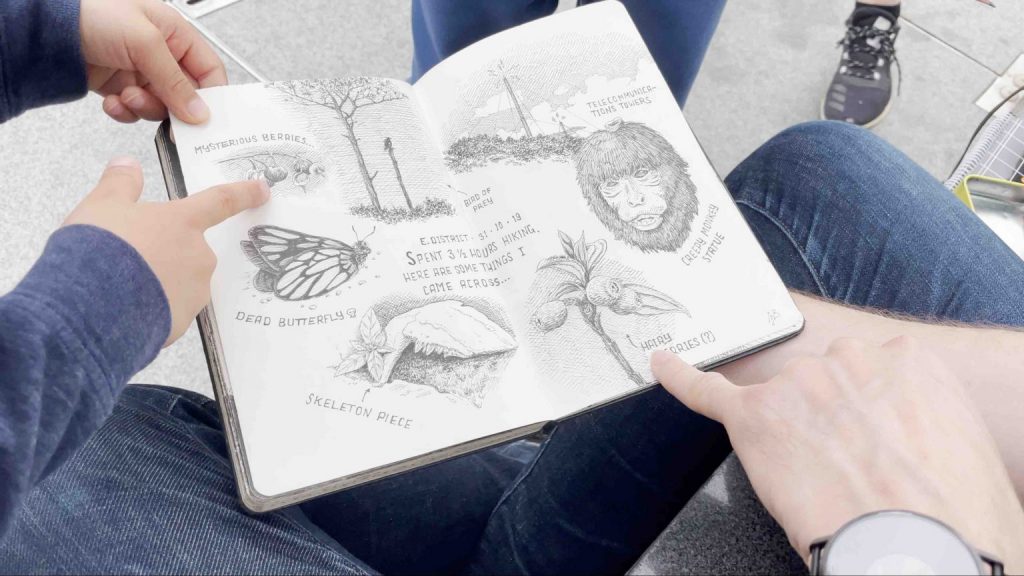 MYSTERIOUS BERRIES...
BIRD OF
PREY
DEAD BUTTERFLY
SKELETON PIECE
E. DISTRICT - 31 . 10 . 19
SPENT 3 ½ HOURS HIKING,
HERE ARE SOME THINGS I
CAME ACROSS...
TELECOMMUNICA-
TIONS TOWERS
CREEPY MONKEY
STATUE
HAIRY
(?)